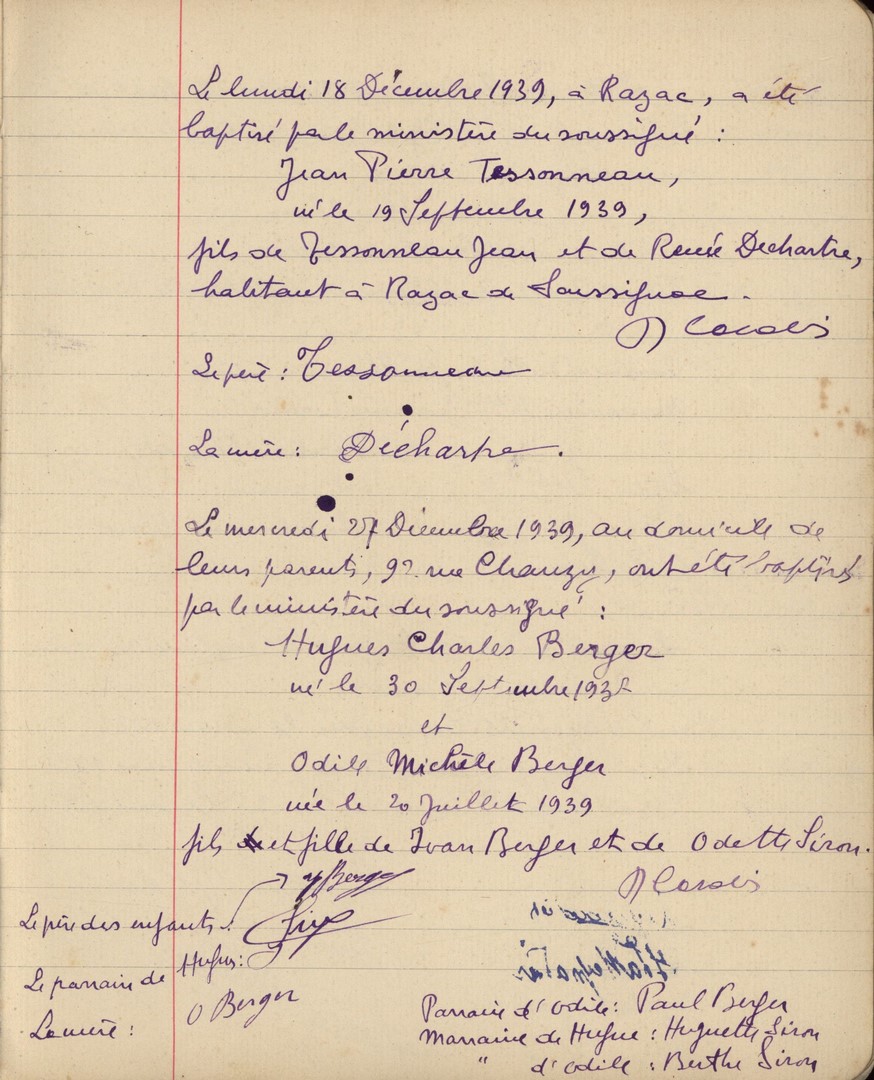 Le lundi 18 Décembre 1939, à Razac, a été
baptisé par le ministère du soussigné :
Jean Pierre Tessonneau,
né le 19 Septembre 1939,
fils de Tessonneau Jean et de Renée Dechartre,
habitant à Razac de Saussignac.
Le père : Tessonneau
La mère : Déchartre.
Le mercredi 27 Décembre 1939, au domicile de
leurs parents, 92 rue Chanzy, ont été baptisés
par le ministère du soussigné :
Hugues Charles Berger
né le 30 Septembre 1938
et
Odile Michèle Berger
née le 20 Juillet 1939
fils et fille de Ivan Berger et de Odette Siron.
Y Berger
Le père des enfants :
Le parrain de Hugues :
La mère : O Berger
Parrain d'Odile : Paul Berger
Marraine de Hugue : Huguette Siron
" d'Odile : Berthe Siron